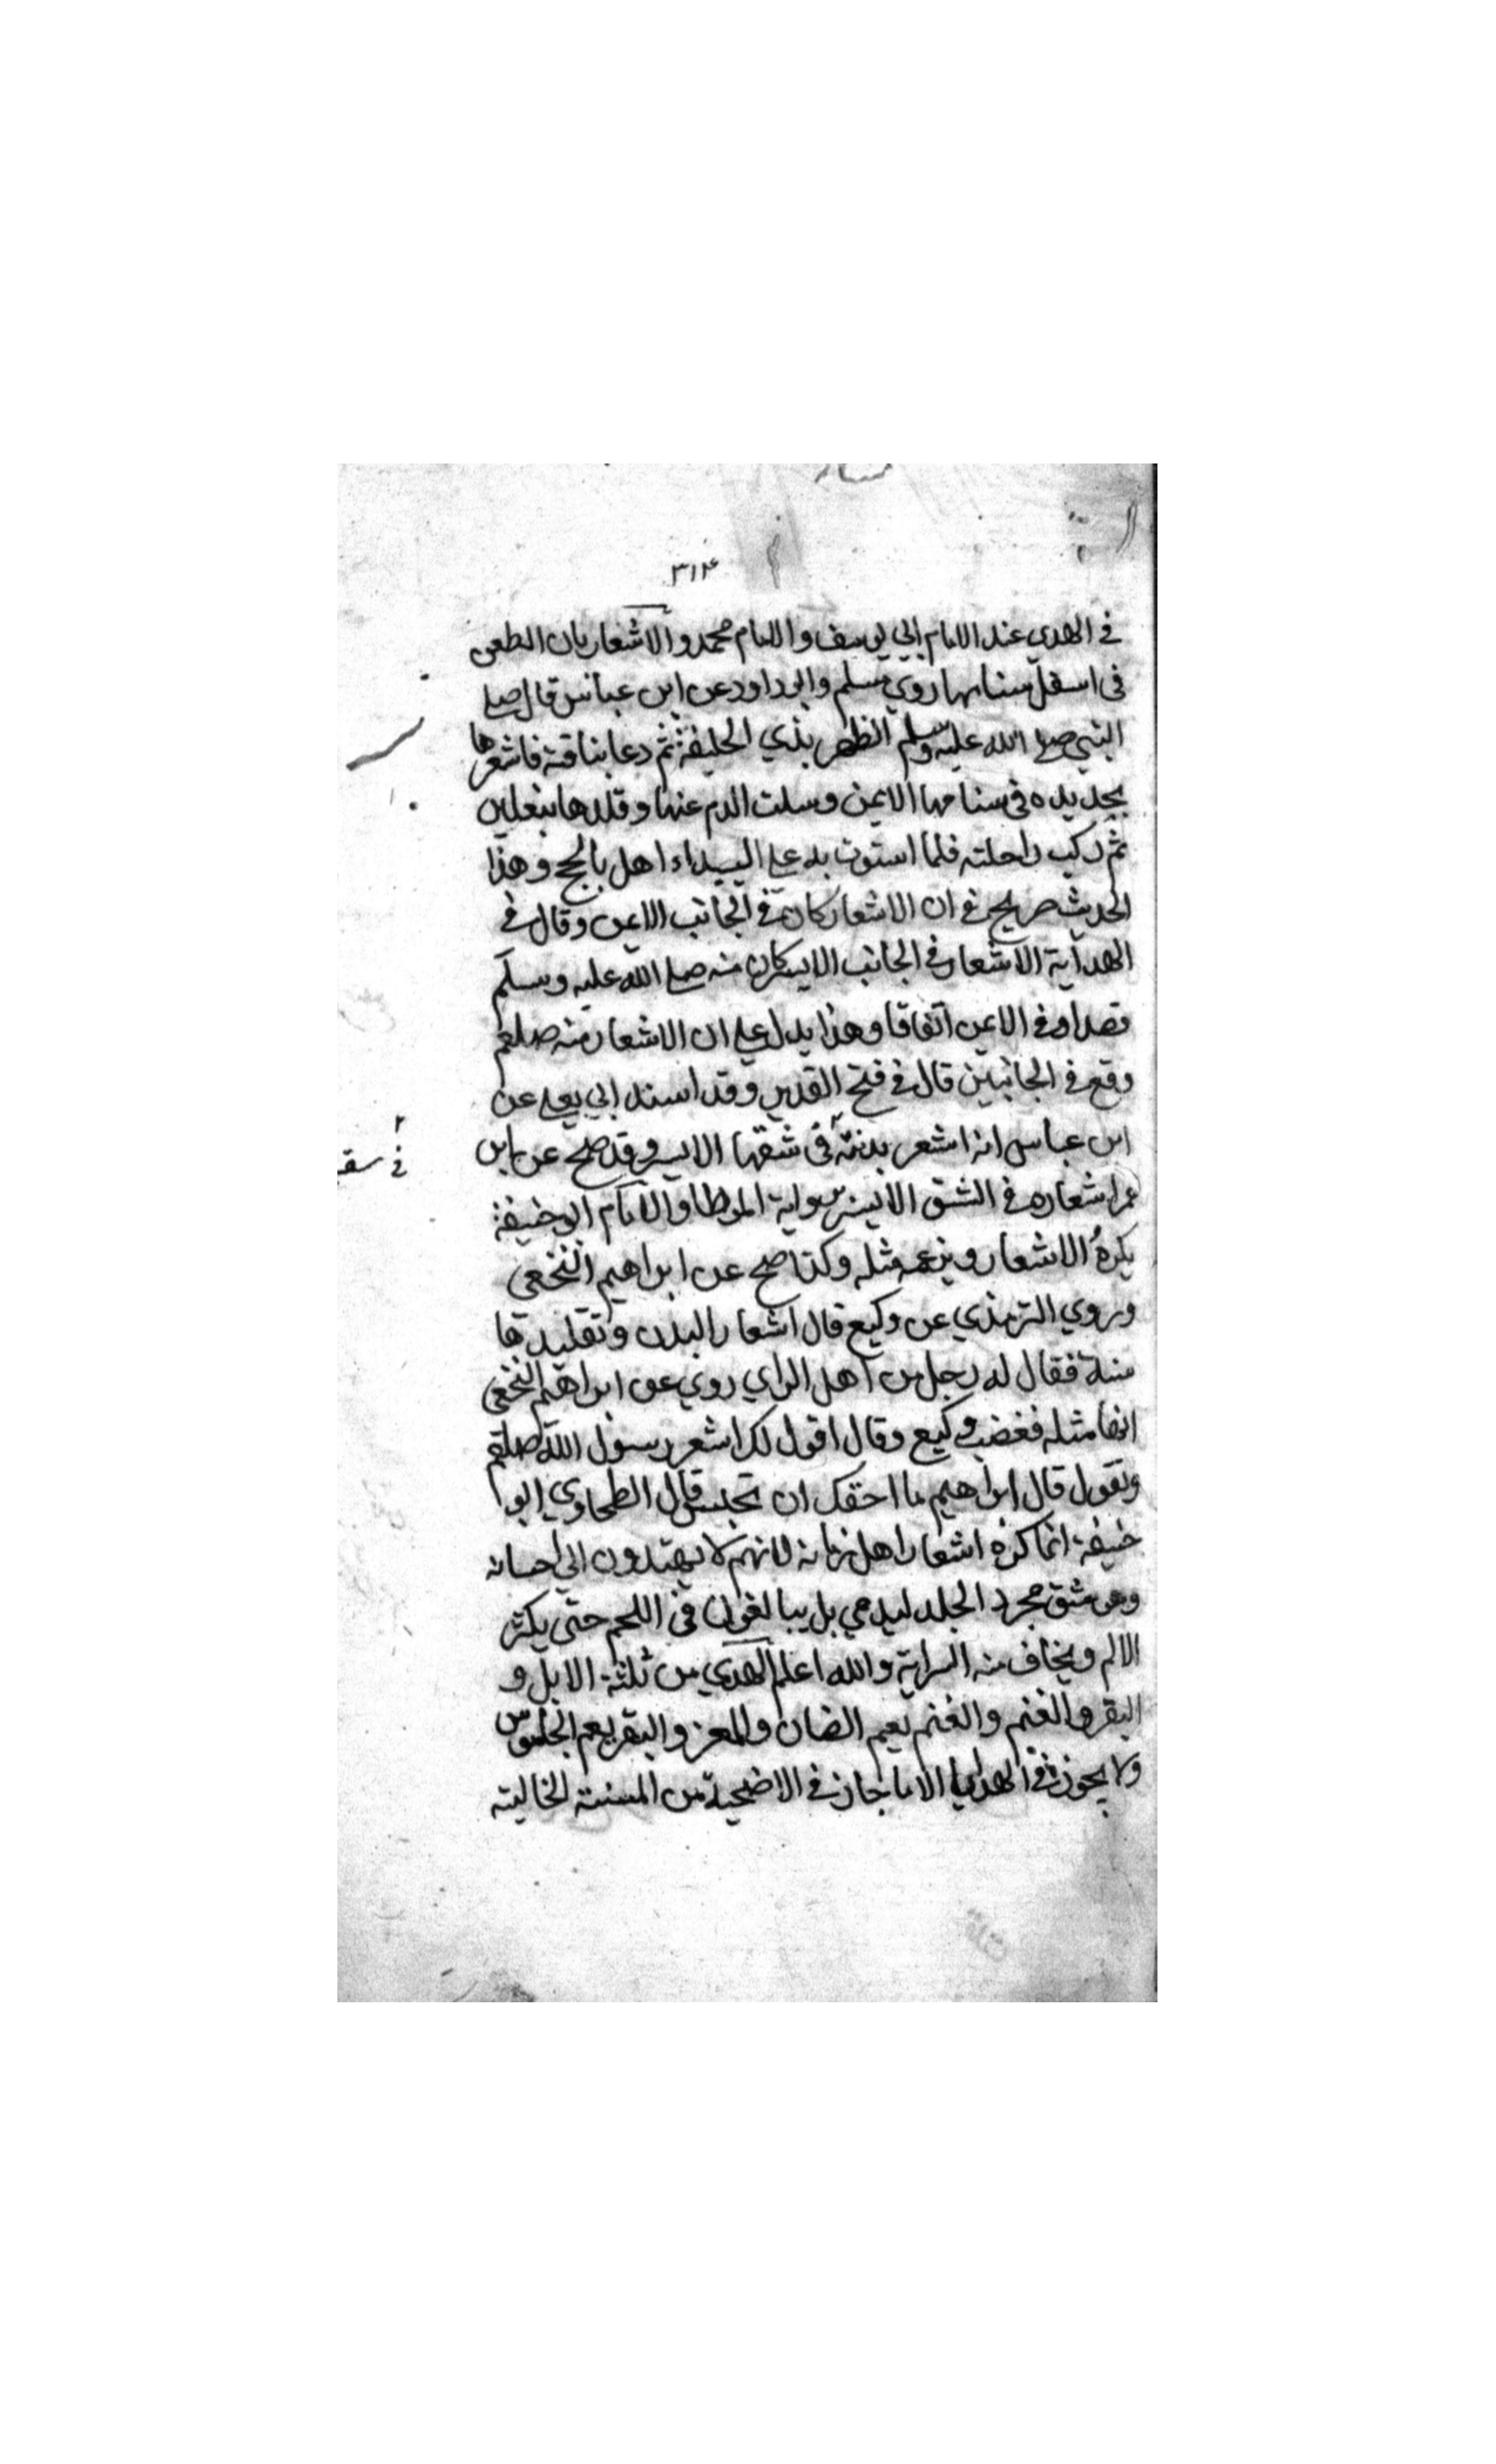 ٣١٤
في الهدي عند الامام ابي يوسف والامام محمد والاشعار بان الطعن
في اسفل سنامها روي مسلم وابو داود عن ابن عباس قال صلي
النبي صلي الله عليه وسلم الظهر بذي الحليفة ثم دعا بناقته فاشعرها
بحديده في سنامها الايمن وسلت الدم عنها وقلدها بنعلين
ثم ركب راحلته فلما استوت به علي البيداء اهل بالحج وهذا
الحديث صريح في ان الاشعار كان في الجانب الايمن وقال في
الهداية الاشعار في الجانب الايسر كان منه صلي الله عليه وسلم
قصدا وفي الايمن اتفاقا وهذا يدل علي ان الاشعار منه صلعم
وقع في الجانبين قال في فتح القدير وقد اسند ابي يعلي عن
ابن عباس انه اشعر بدنته في شقها الايسر وقد صح عن ابن
عمر اشعاره في الشق الايسر برواية الموطا والامام ابو حنيفة
يكره الاشعار ويزعمه مثله وكذا صح عن ابراهيم النخعي
وروي الترمذي عن وكيع قال اشعار البدن وتقليدها
سنة فقال له رجل من اهل الراي روي عن ابراهيم النخعي
انها مثله فغضب وكيع وقال اقول لك اشعر رسول الله صلعم
وتقول قال ابراهيم ما احقك ان تحبس قال الطحاوي ابو
حنيفة انما كره اشعار اهل زمانه لانهم لا يهتدون الي احسانه
وهو شق مجرد الجلد ليدمي بل يبالغون في اللحم حتي يكثر
الالم ويخاف منه السراية والله اعلم الهدي من ثلثة الابل و
البقر والغنم والغنم يعم الضان والمعز والبقر يعم الجاموس
ولا يجوز في الهدايا الا ما جاز في الاضحية من المسنة الخالية